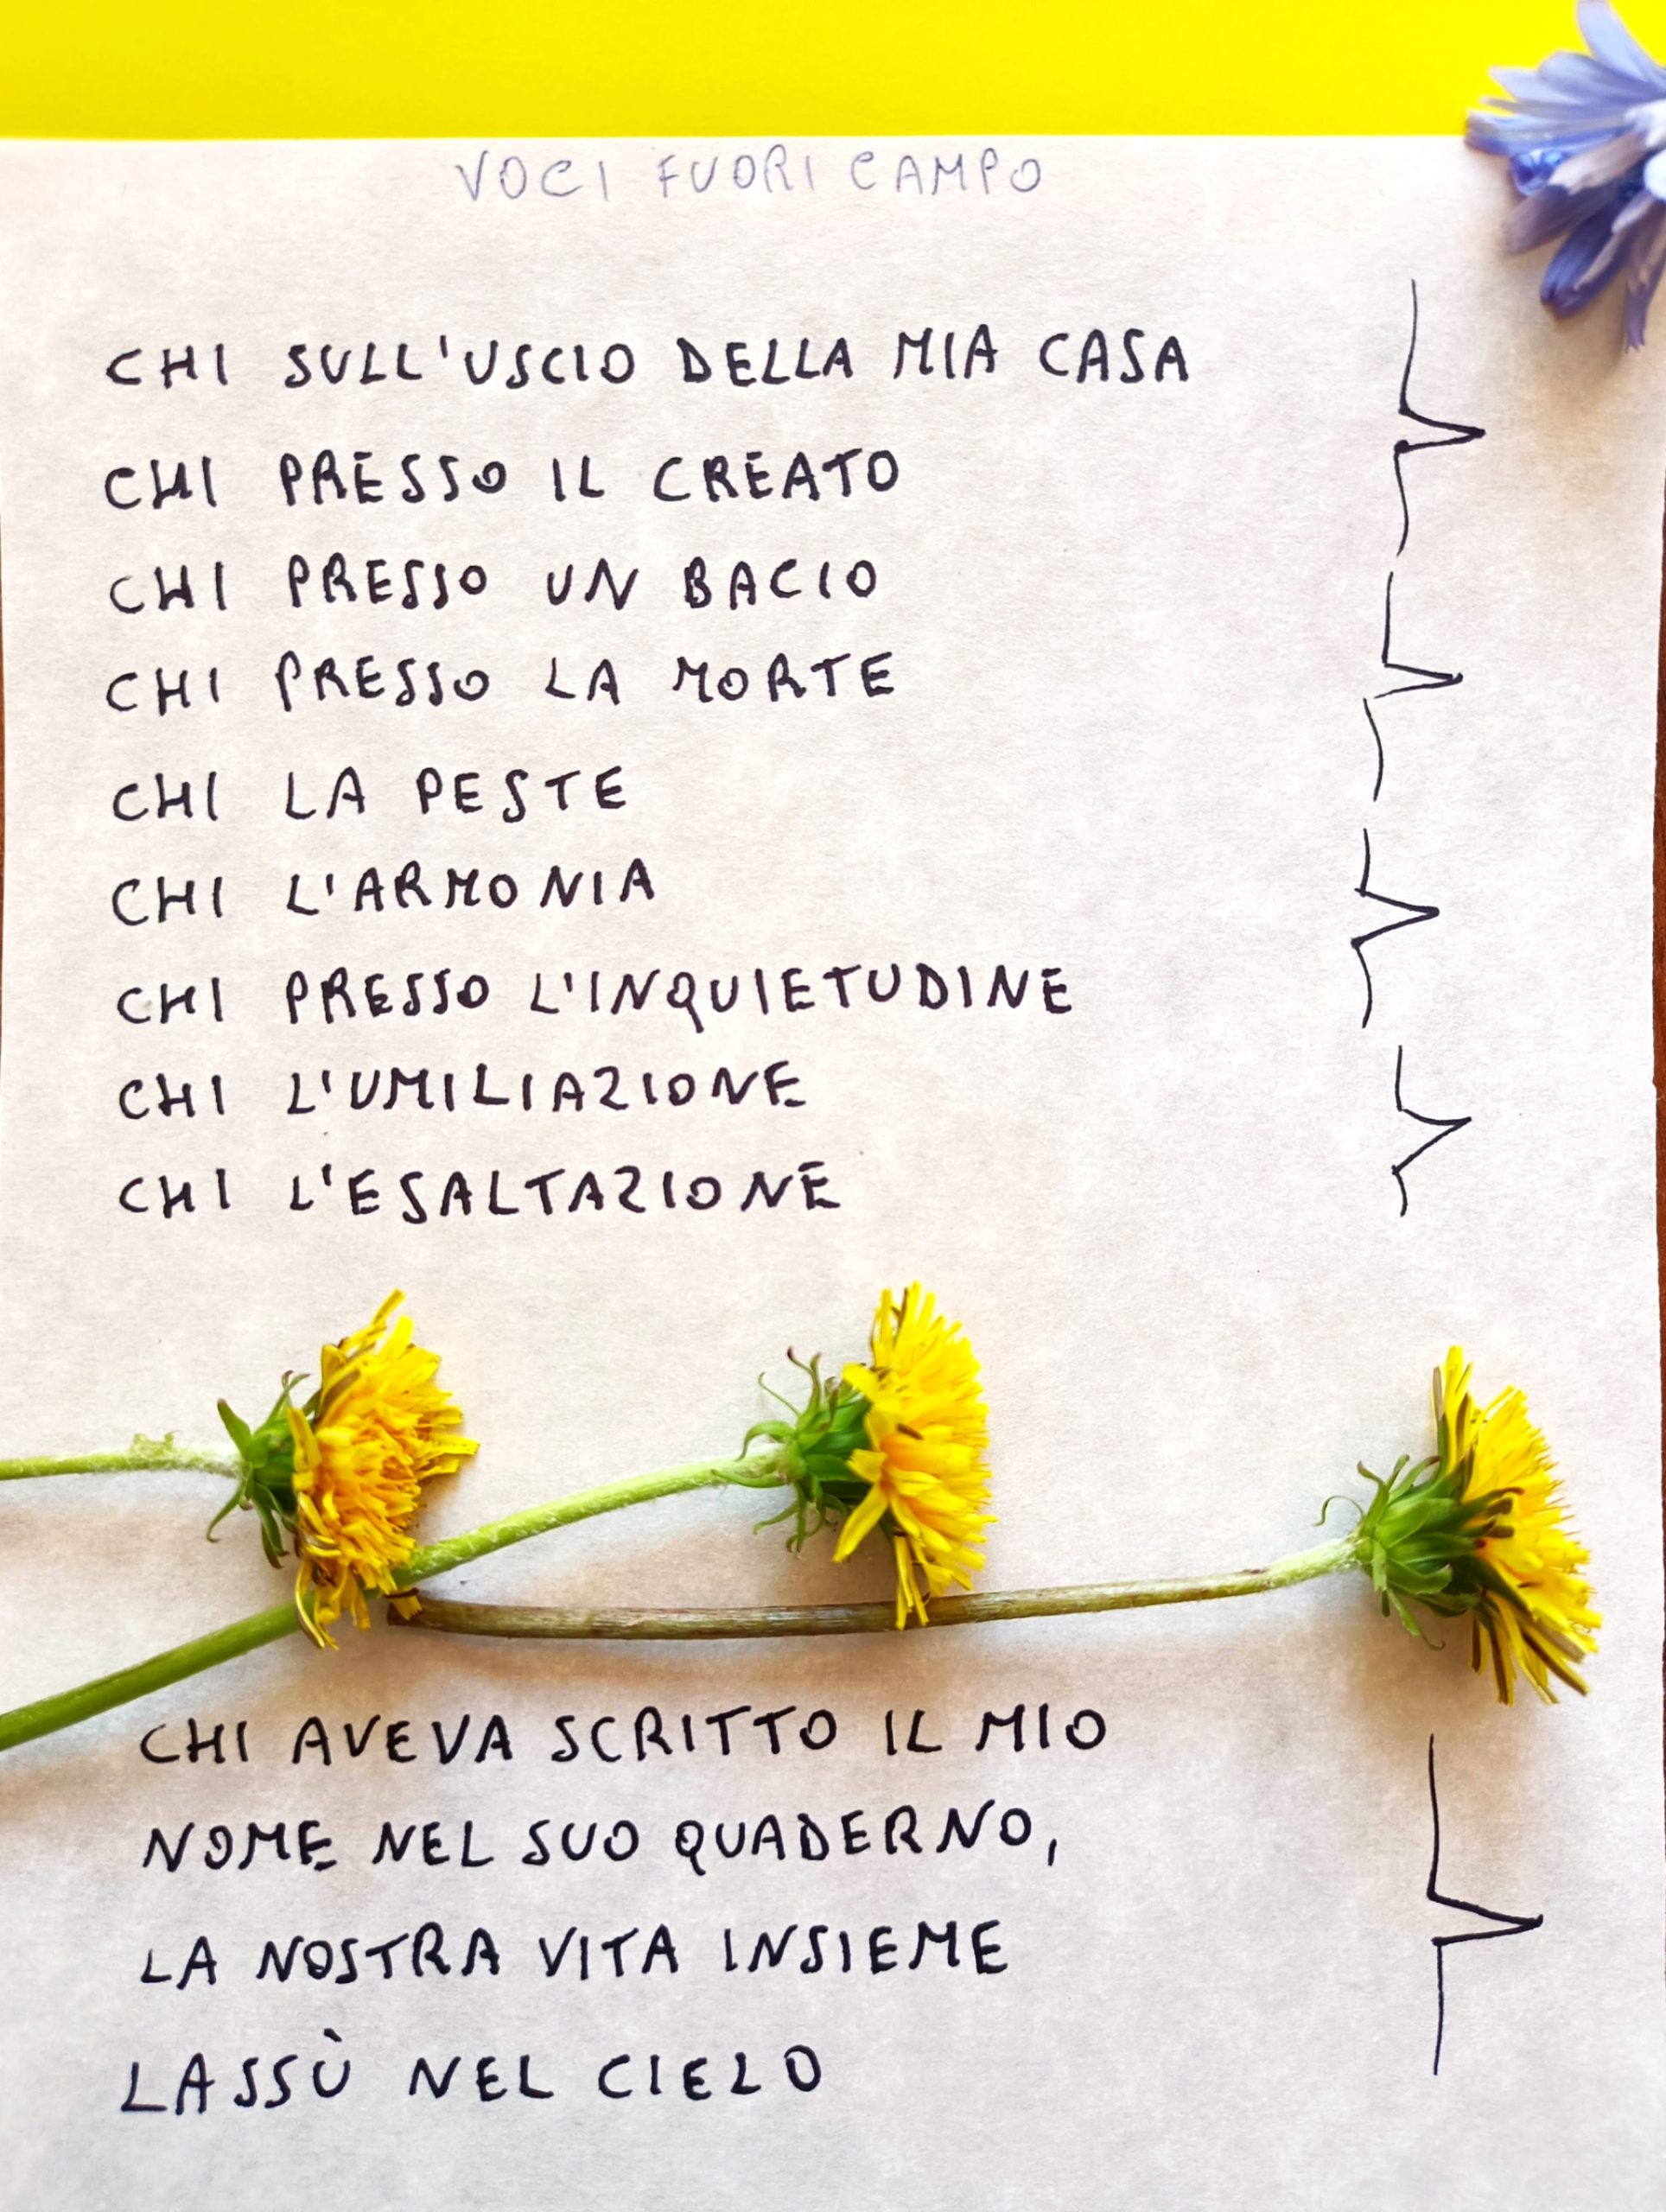 VOCI FUORI CAMPO
CHI SULL'USCIO DELLA MIA CASA
CHI PRESSO IL CREATO
CHI PRESSO UN BACIO
CHI PRESSO LA MORTE
CHI LA PESTE
CHI L'ARMONIA
CHI PRESSO L'INQUIETUDINE
CHI L'UMILIAZIONE
CHI L'ESALTAZIONE
CHI AVEVA SCRITTO IL MIO
NOME NEL SUO QUADERNO,
LA NOSTRA VITA INSIEME
LASSÙ NEL CIELO